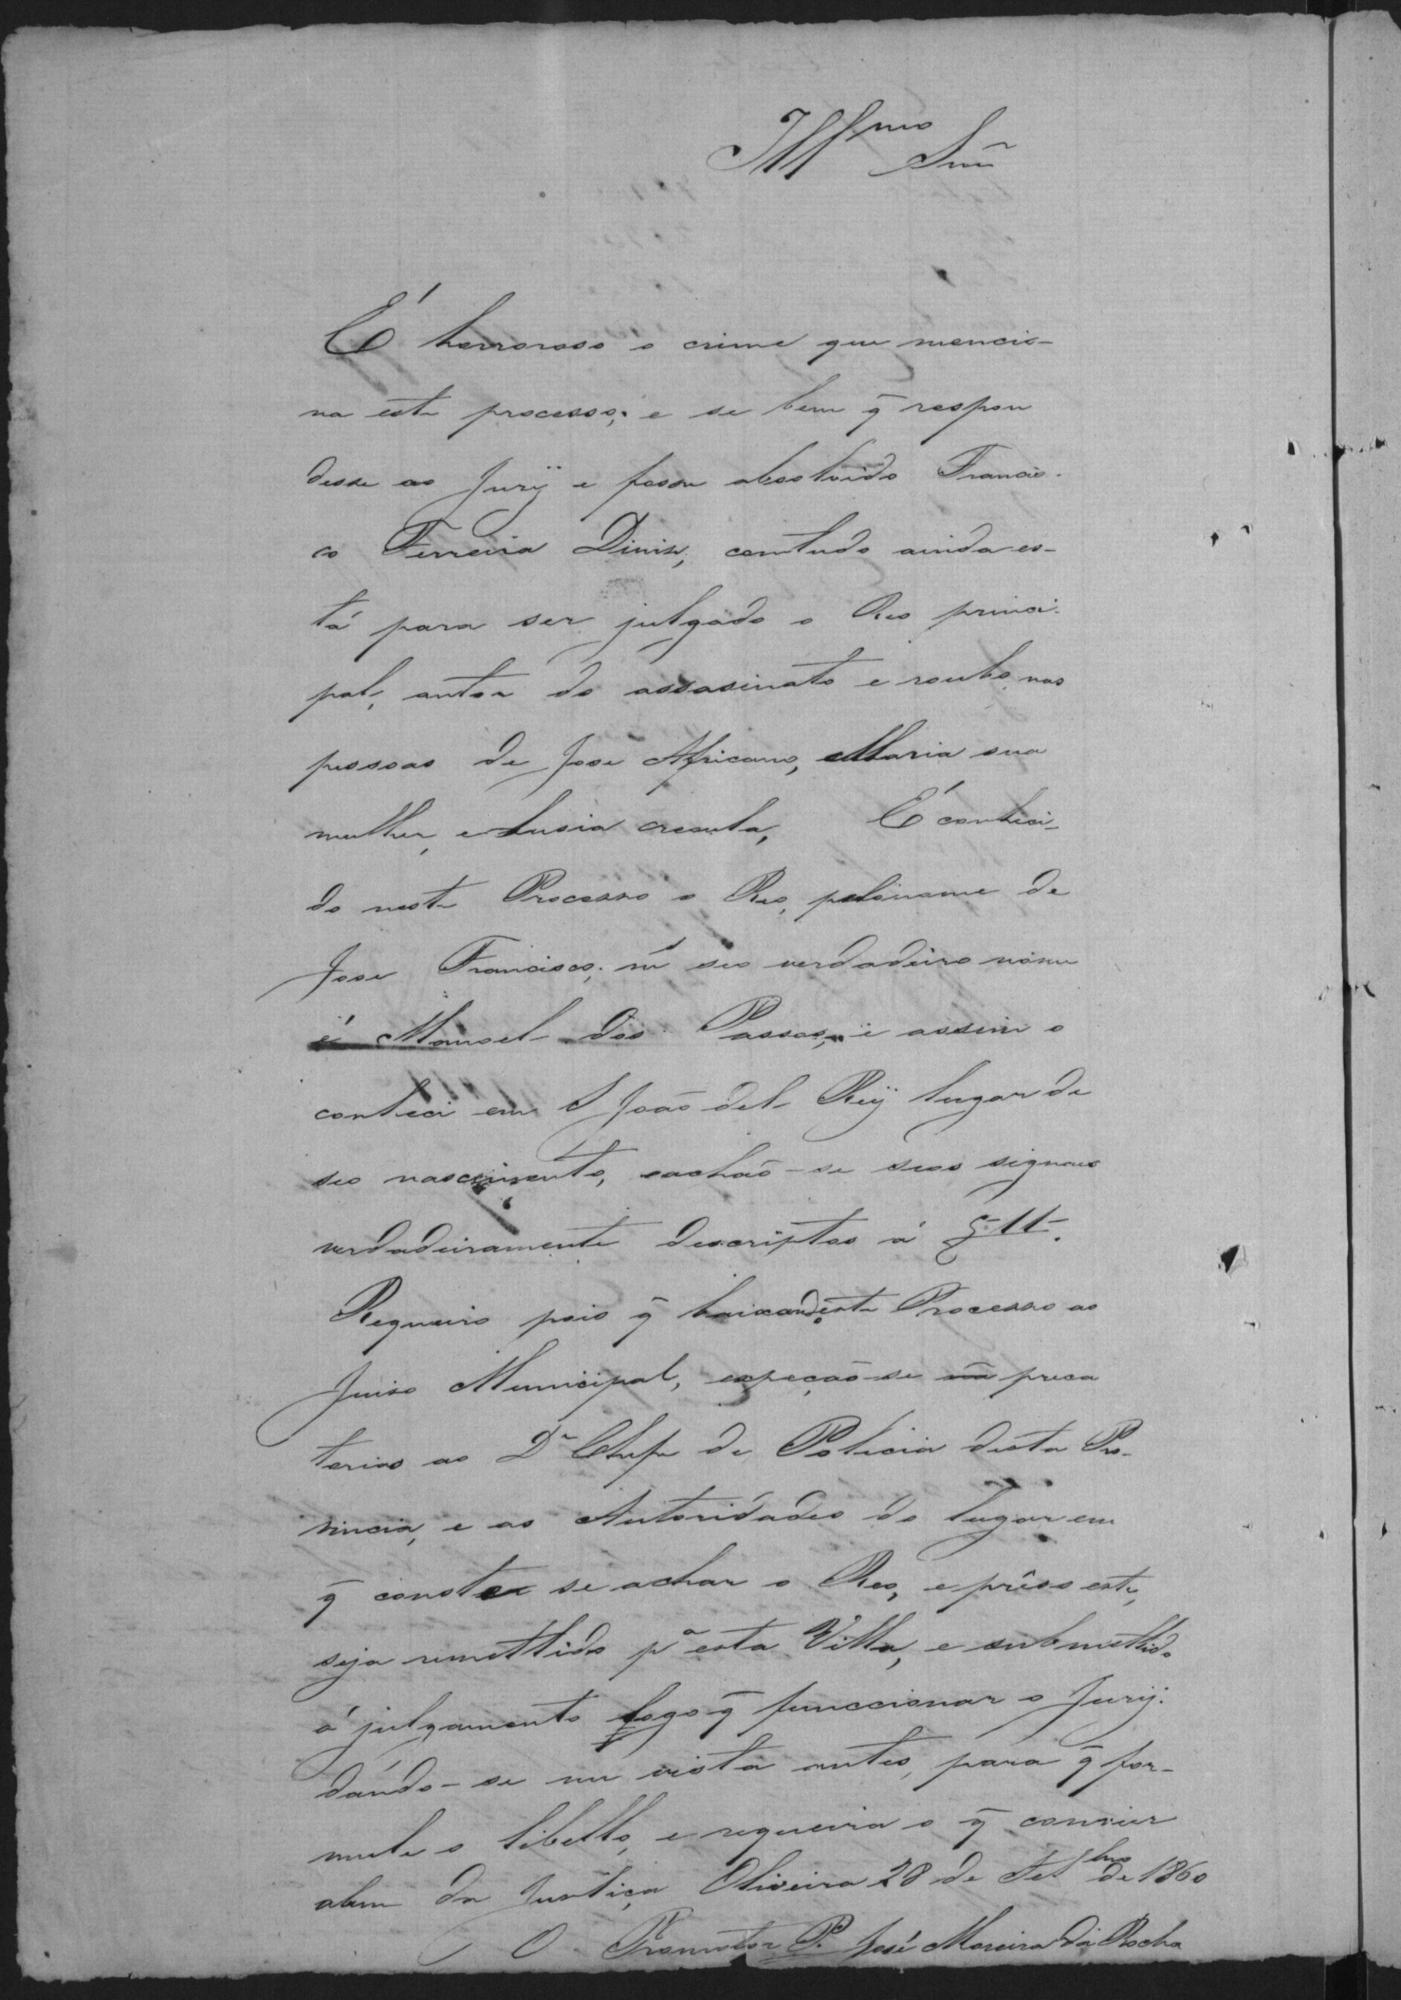 Ill^mo Snr̃
É horroroso o crime que mencio-
na este processo; e se bem q̃ respon
desse ao Jury e fosse absolvido Francis-
co Ferreira Diniz, comtudo ainda es-
tá para ser julgado o Reo princi-
pal, autor do assasinato e roubo nas
pessoas de Jose Africano, Maria sua
mulher, e Lusia creoula, É conheci-
do neste Processo o Reo, pelo nome de
Jose Francisco; m seo verdadeiro nome
é Manoel dos Passos, e assim o
conheci em S João del Rey lugar de
seo nascimento, e achão-se seos signaes
verdadeiramente descriptos á
Requeiro pois q̃ baixando este Processo ao
Juiso Municipal, expeção-se preca
torias ao D^r Chefe de Policia desta Pro-
vincia, e as Autoridades do lugar em
q̃ constar se achar o Reo, e prêso este,
seja remettido p^a esta Villa, e submettido
á julgamento logo q̃ funccionar o Jury.
dando-se me vista antes, para q̃ for-
mule o libello, e requeira o q̃ convier
abem da Justiça Oliveira 28 de Set^bro de 1860
O Promotor P. José Moreira da Rocha